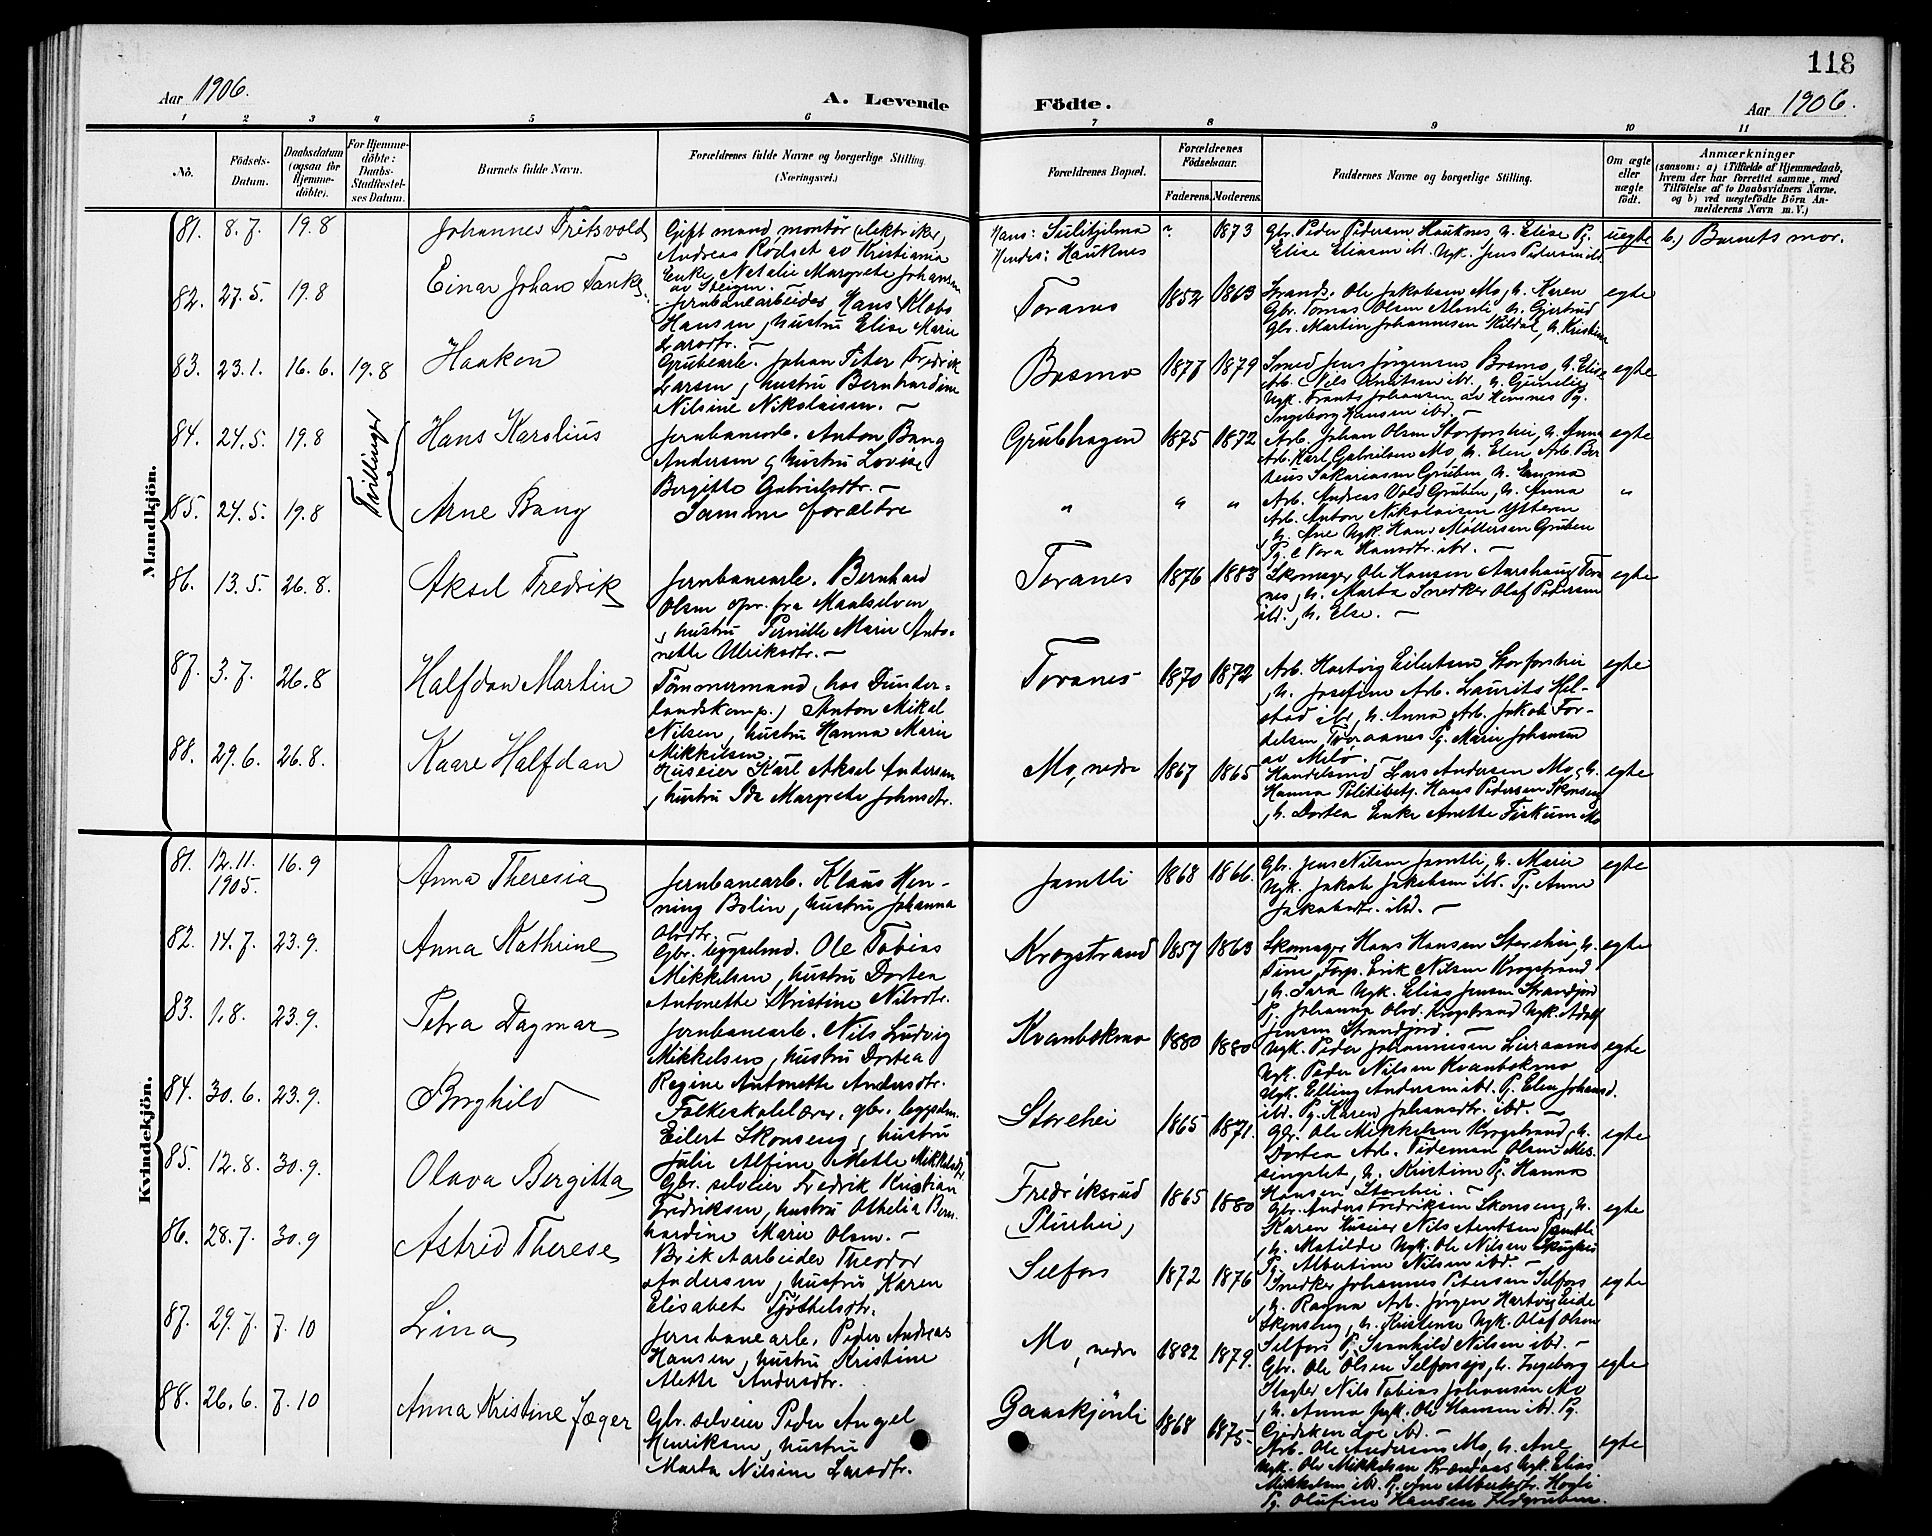 118
Aar 1906.
A. Levende
Födte.
Aar 1906.
1 2 3 4 5 6 7 8 9 10 11
Nö.
Födsels-
Datum.
Daabsdatum
(ogsaa for
Hjemme-
döbte).
For Hjemme-
döbte:
Daabs-
Stadfæstel-
ses Datum.
Barnets fulde Navn.
Forældrenes fulde Navne og borgerlige Stilling.
(Næringsvei.)
Forældrenes Bopæl.
Forældrenes
Födselsaar.
Faderens. Moderens.
Faddernes Navne og borgerlige Stilling.
Om ægte
eller
uægte
födt.
Anmærkninger
(saasom: a) i Tilfælde af Hjemmedaab,
hvem der har forrettet samme, med
Tilföielse af to Daabsvidners Navne.
og b) ved uegtefödte Börn An-
melderens Navn m. V.)
Mandkjön.
81. 8.7. 19.8 Johannes Fritsvold
Gift mand, montör (elektriker)
Andreas Rödset av Kristiania
Enke Natalie Margrete Johansen
av Steigen. —
Hans: Sulitjelma
Hendes: Hauknes
? 1873
Gbr. Peder Pedersen Hauknes h. Elise Pg.
Elise Eliasen ib. Ugk. Jens Pedersen ibd.
uegte
b.) Barnets mor.
82. 27.5. 19.8 Einar Johan Tank
Jernbanearbeider Hans Klebo
Hansen, hustru Elise Marie
Larsdtr. —
Toranes 1852 1863
Ole Jakobsen Mo, h. Karen
Gbr. Tomas Olsen h. Gjertrud
Gbr. Martin Johannesen Skildal, h. Kristine
egte
83. 23.1. 16.6. 19.8 Haakon
Grubearb. Johan Peter Fredrik
Larsen, hustru Bernhardine
Nilsine Nikolaisen. —
Bosmo 1877 1879
Smed Jens Jörgensen Bosmo, h. Elise
Arb. Nils Knutsen ibd., h.
Ugk. Frants Johansen av Hemnes Pg.
Ingeborg Hansen ibd. —
egte
Tvillinger
84. 24.5. 19.8 Hans Karolius
Jernbanearb. Anton Bang
Andersen, hustru Lovise
Bergitte Gabrielsdtr. —
Grubhagen 1875 1872
Arb. Johan Olsen Storforshei, h. Anna
Arb. Karl Gabrielsen Mo, h. Elen Arb. Ber-
teus Sakariassen Gruben h. Emma
egte
85. 24.5. 19.8 Arne Bang
Samme forældre
" " " 
Arb. Andreas Vold Gruben, h. Anna
Arb. Anton Nikolaisen Ytteren
h. Ane Ugk. Hans Möllersen Gruben
Pg. Nora Hansdtr. ibd. —
"
86. 13.5. 26.8. Aksel Fredrik
Jernbanearb. Bernhard
Olsen opr. fra Maalselven
, hustru Pernille Marie Anto-
nette Ulriksdtr. —
Toranes 1876 1883
Skomager Ole Hansen Aarshaug Tora
nes, h. Marta Snedker Olaf Pedersen
ibd., h. Else. —
egte
87. 3.7. 26.8 Halfdan Martin
Tömmermand, hos Dunder-
landskomp.) Anton Mikal
Nilsen, hustru Hanna Marie
Mikkelsen.
Toranes 1870 1872
Arb. Hartvig Eilertsen Storforshei
, h. Josefine Arb. Laurits Hel-
stad ibd, h. Anna Arb. Jakob Tor-
kelsen Toraanes Pg. Marie Johansen
av Melö. —
egte
88. 29.6. 26.8. Kaare Halfdan
Huseier Karl Aksel Andersen
, hustru Ida Margrete Johnsdtr.
Mo, nedre 1867 1865
Handelsmd Lars Andersen Mo, h.
Hanna Politibetj. Hans Pedersen Skonseng
, h. Dortea Enke Anette Fiskum Mo
egte
Kvindekjön.
81. 12.11. 1905. 16.9 Anna Theresia
Jernbanearb. Klaus Hen-
ning Bolin, hustru Johanna
Olsdtr. —
Jamtli 1868 1866.
Gbr. Jens Nilsen Jamtli, h. Marie
Ugk. Jakob Jakobsen ibd. Pg. Anne
Jakobsdtr. ibd. —
egte
82. 14.7. 23.9. Anna Kathrine
Gbr. bygselmd. Ole Tobias
Mikkelsen, hustru Dortea
Antonette Kristine Nilsdtr.
Krogstrand 1857 1863
Skomager Hans Hansen Storehei, h.
Tine, Forp. Erik Nilsen Krogstrand
, h. Sara Ugk. Elias Jensen Strandjord
Pg. Johanna Olsd. Krogstrand Ugk. Adolf
Jensen Strandjord. —
egte
83. 1.8. 23.9. Petra Dagmar
Jernbanearb. Nils Ludvig
Mikkelsen, hustru Dortea
Regine Antonette Andersdtr.
Kvanbokmo 1880 1880
Ugk. Peder Johannesen
Ugk. Peder Nilsen Kvanbokmo
Ugk. Elling Andersen ibd. Pg. Elen Johansd.
ibd. Pg. Karen Johansdtr. ibd. —
egte
84. 30.6. 23.9. Borghild
Folkeskolelærer, gbr. bygselm.
Eilert Skonseng, hustru
Julie Alfine Mette Mikkelsdtr
Storehei 1865 1871.
Gbr. Ole Mikkelsen Krogstrand, h.
Dortea Arb. Tideman Olsen Mes-
singslet, h. Kristine Pg. Hanna
Hansen Storehei. —
egte
85. 12.8. 30.9. Olava Bergitta
Gbr. selveier Fredrik Kristian
Fredriksen, hustru Othelia Bern-
hardine Marie Olsen. —
Fredriksrud
(Plurhei) 1865 1880
Gbr. Anders Fredriksen Skonseng, h.
Karen Huseier Nils Arntsen Jamtli
, h. Matilde Ugk. Ole Nilsen
Pg. Albertine Nilsen ibd. —
egte
86. 28.7. 30.9 Astrid Therese
Brikarbeider Theodor
Andersen, hustru Karen
Elisabet Tjöstelsdtr.
Selfors 1872 1876
Snedker Johannes Petersen Selfors
, h. Ragna Arb. Jörgen Hartvig Eide
Skonseng, h. Kristense Ugk. Olaf Olsen
Selfors Pg. Svanhild Nilsen ibd. —
egte
87. 29.7. 7.10 Lina
Jernbanearb. Peder Andreas
Hansen, hustru Kristine
Alette Andersdtr.
Mo, nedre 1882 1879.
Gbr. Ole Olsen Selforssjö, h. Ingeborg
Slagter Nils Tobias Johansen Mo
, h. Anna Ugk. Ole Hansen ibd. Pg.
ibd. —
egte
88. 26.6. 7.10 Anna Kristine Jæger
Gbr. selveier Peder Angel
Henriksen, hustru
Marta Nilsine Larsdtr.
Gaaskjönli 1868 1875.
Arb. Ole Andersen Mo, h. Ane
Ugk. Ole Mikkelsen Ugk. Elias
Mikkelsen ibd. Pg. Albertsdtr.
Pg. Olufine Hansen Ildgruben.
egte